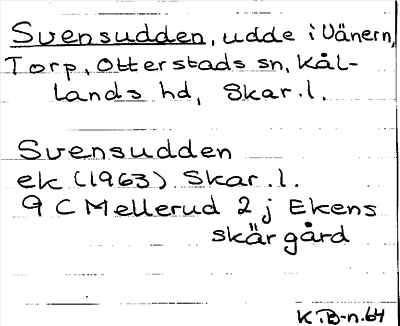 Svensudden, udde i Vänern,
Torp, Otterstads sn, Kål-
lands hd, Skar.l.
Svensudden
ek (1963) Skar.l.
9 C Mellerud 2 j Ekens
skärgård
KTB-n.64